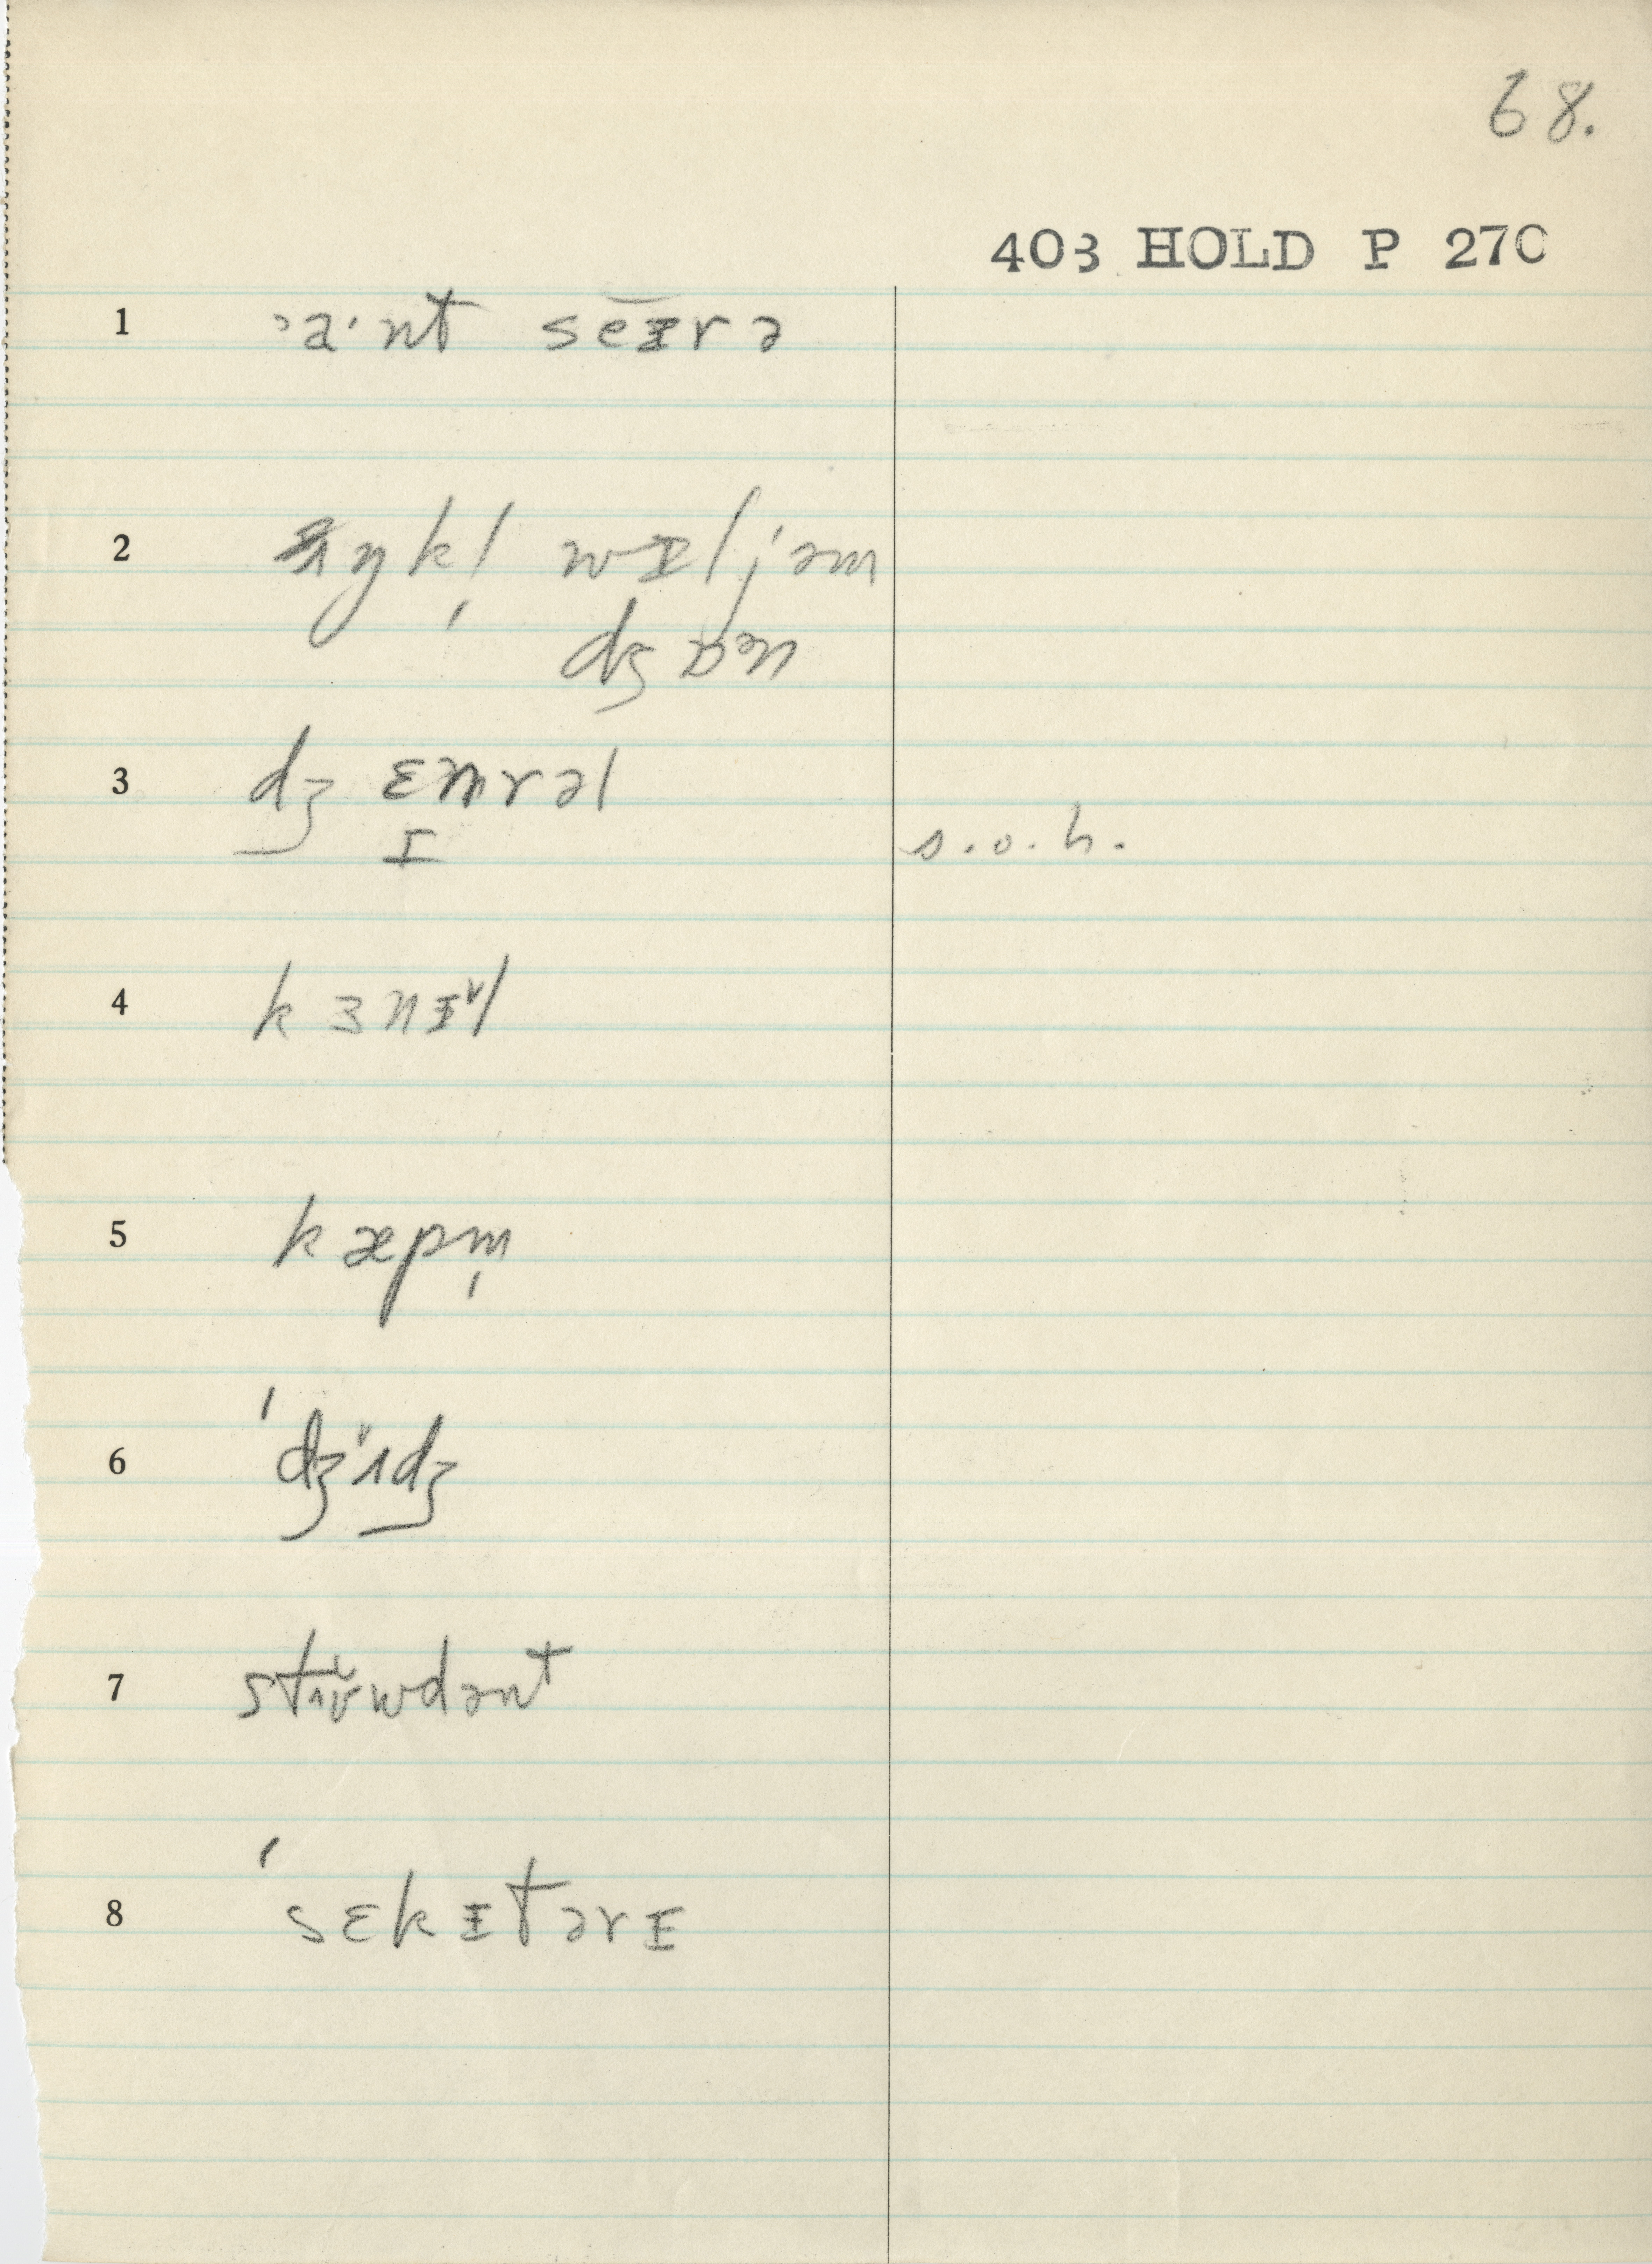 68.
403 HOLD P 270
1 ˃a·nt seɪrə
2 ʌŋkl̩ wɪljəm
dʒɒən
3 dʒ ɛmrəl
ɪ s.o.h.
4 k ɜnɪˇl
5 kæpm̩
6 'dʒˇʌdʒ
7 stɪʊˇwdənt
8 'sɛkɪtərɪ